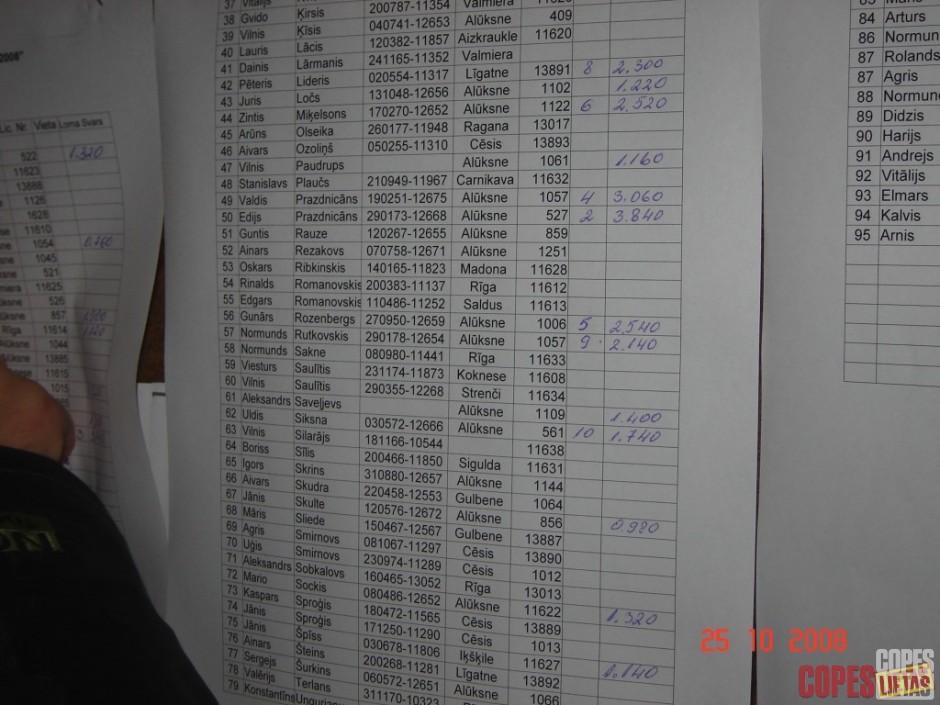 2008"
Lic. Nr. Vieta Loms Svars
522 1.320
11623
13888
1126
1628
11610
1054 0.760
1045
521
11625
526
857
Rīga 11614
Alūksne 1044
13885
11615
1015
37 Vitālijs
38 Gvido Ķirsis 200787-11354 Valmiera
39 Vilnis Ķīsis 040741-12653 Alūksne 409
40 Lauris Lācis 120382-11857 Aizkraukle 11620
41 Dainis Lārmanis 241165-11352 Valmiera
42 Pēteris Lideris 020554-11317 Līgatne 13891 8 2.300
43 Juris Ločs 131048-12656 Alūksne 1102 1.220
44 Zintis Miķelsons 170270-12652 Alūksne 1122 6 2.520
45 Arūns Olseika 260177-11948 Ragana 13017
46 Aivars Ozoliņš 050255-11310 Cēsis 13893
47 Vilnis Paudrups Alūksne 1061 1.160
48 Stanislavs Plaučs 210949-11967 Carnikava 11632
49 Valdis Prazdnicāns 190251-12675 Alūksne 1057 4 3.060
50 Edijs Prazdnicāns 290173-12668 Alūksne 527 2 3.840
51 Guntis Rauze 120267-12655 Alūksne 859
52 Ainars Rezakovs 070758-12671 Alūksne 1251
53 Oskars Ribkinskis 140165-11823 Madona 11628
54 Rinalds Romanovskis 200383-11137 Rīga 11612
55 Edgars Romanovskis 110486-11252 Saldus 11613
56 Gunārs Rozenbergs 270950-12659 Alūksne 1006 5 2.540
57 Normunds Rutkovskis 290178-12654 Alūksne 1057 9 2.140
58 Normunds Sakne 080980-11441 Rīga 11633
59 Viesturs Saulītis 231174-11873 Koknese 11608
60 Vilnis Saulītis 290355-12268 Strenči 11634
61 Aleksandrs Saveļjevs Alūksne 1109 1.400
62 Uldis Siksna 030572-12666 Alūksne 561 10 1.740
63 Vilnis Silarājs 181166-10544 11638
64 Boriss Sīlis 200466-11850 Sigulda 11631
65 Igors Skrins 310880-12657 Alūksne 1144
66 Aivars Skudra 220458-12553 Gulbene 1064
67 Jānis Skulte 120576-12672 Alūksne 856 0.980
68 Māris Sliede 150467-12567 Gulbene 13887
69 Agris Smirnovs 081067-11297 Cēsis 13890
70 Uģis Smirnovs 230974-11289 Cēsis 1012
71 Aleksandrs Sobkalovs 160465-13052 Rīga 13013
72 Mario Sockis 080486-12652 Alūksne 11622 1.320
73 Kaspars Sproģis 180472-11565 Cēsis 13889
74 Jānis Sproģis 171250-11290 Cēsis 1013
75 Jānis Špīss 030678-11806 Ikšķile 11627 1.140
76 Ainars Šteins 200268-11281 Līgatne 13892
77 Sergejs Šurkins 060572-12651 Alūksne 1066
78 Valērijs Terlans 311170-10323
79 Konstantīns
84 Arturs
86 Normun
87 Rolands
87 Agris
88 Normund
89 Didzis
90 Harijs
91 Andrejs
92 Vitālijs
93 Elmars
94 Kalvis
95 Arnis
25 10 2008
COPES
COPES
LIETAS